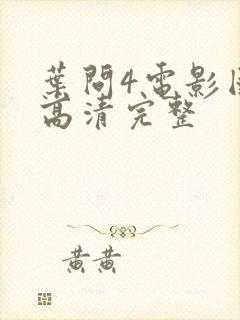 葉問4電影
高清完整
黄黄